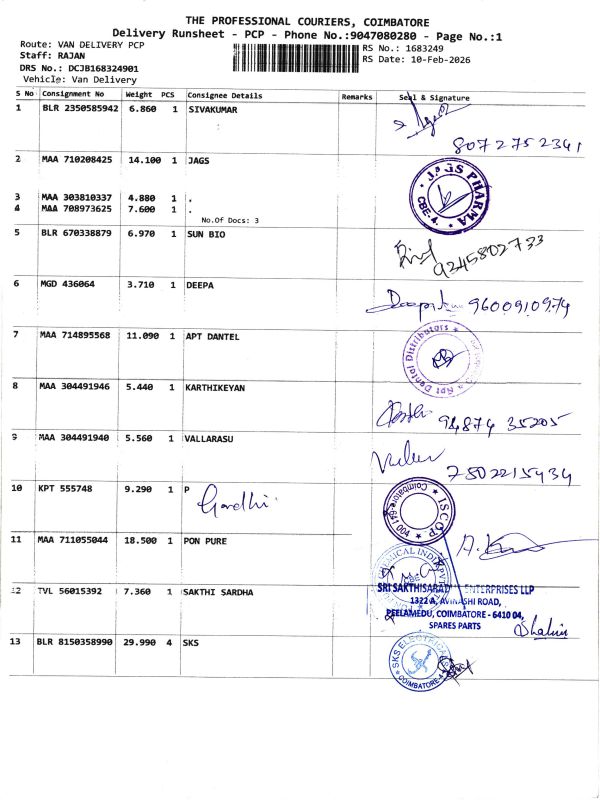 THE PROFESSIONAL COURIERS, COIMBATORE
Delivery Runsheet - PCP - Phone No.:9047080280 - Page No.:1
Route: VAN DELIVERY PCP
RS No.: 1683249
Staff: RAJAN
RS Date: 10-Feb-2026
DRS No.: DCJB168324901
Vehicle: Van Delivery
S No Consignment No Weight PCS Consignee Details Remarks Seal & Signature
1 BLR 2350585942 6.860 1 SIVAKUMAR
8072752341
2 MAA 710208425 14.100 1 JAGS
JAGS PHARMA
CBE-4.
3 MAA 303810337 4.880 1 .
4 MAA 708973625 7.600 1 .
No.Of Docs: 3
5 BLR 670338879 6.970 1 SUN BIO
9245802733
6 MGD 436064 3.710 1 DEEPA
9600910974
7 MAA 714895568 11.090 1 APT DANTEL
Apt Dental Distributors
8 MAA 304491946 5.440 1 KARTHIKEYAN
94874 35205
9 MAA 304491940 5.560 1 VALLARASU
7502215434
10 KPT 555748 9.290 1 P
Gandhi
ISCOP
Coimbatore-641 004
11 MAA 711055044 18.500 1 PON PURE
12 TVL 56015392 7.360 1 SAKTHI SARDHA
SRI SAKTHISARADA ENTERPRISES LLP
1322 A, AVINASHI ROAD,
PEELAMEDU, COIMBATORE - 6410 04,
SPARES PARTS
Shalini
13 BLR 8150358990 29.990 4 SKS
SKS ELECTRICALS
COIMBATORE-4